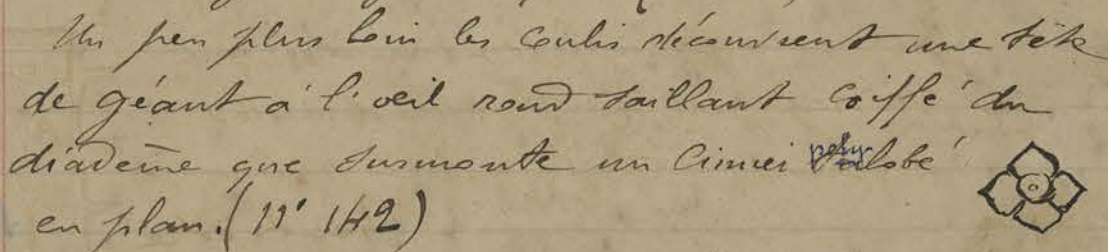 Un peu plus loin les coulis découvrent une tête
de géant à l'oeil rond saillant coiffé du
diadème que surmonte un cimier polylobé
en plan. (11' 142)